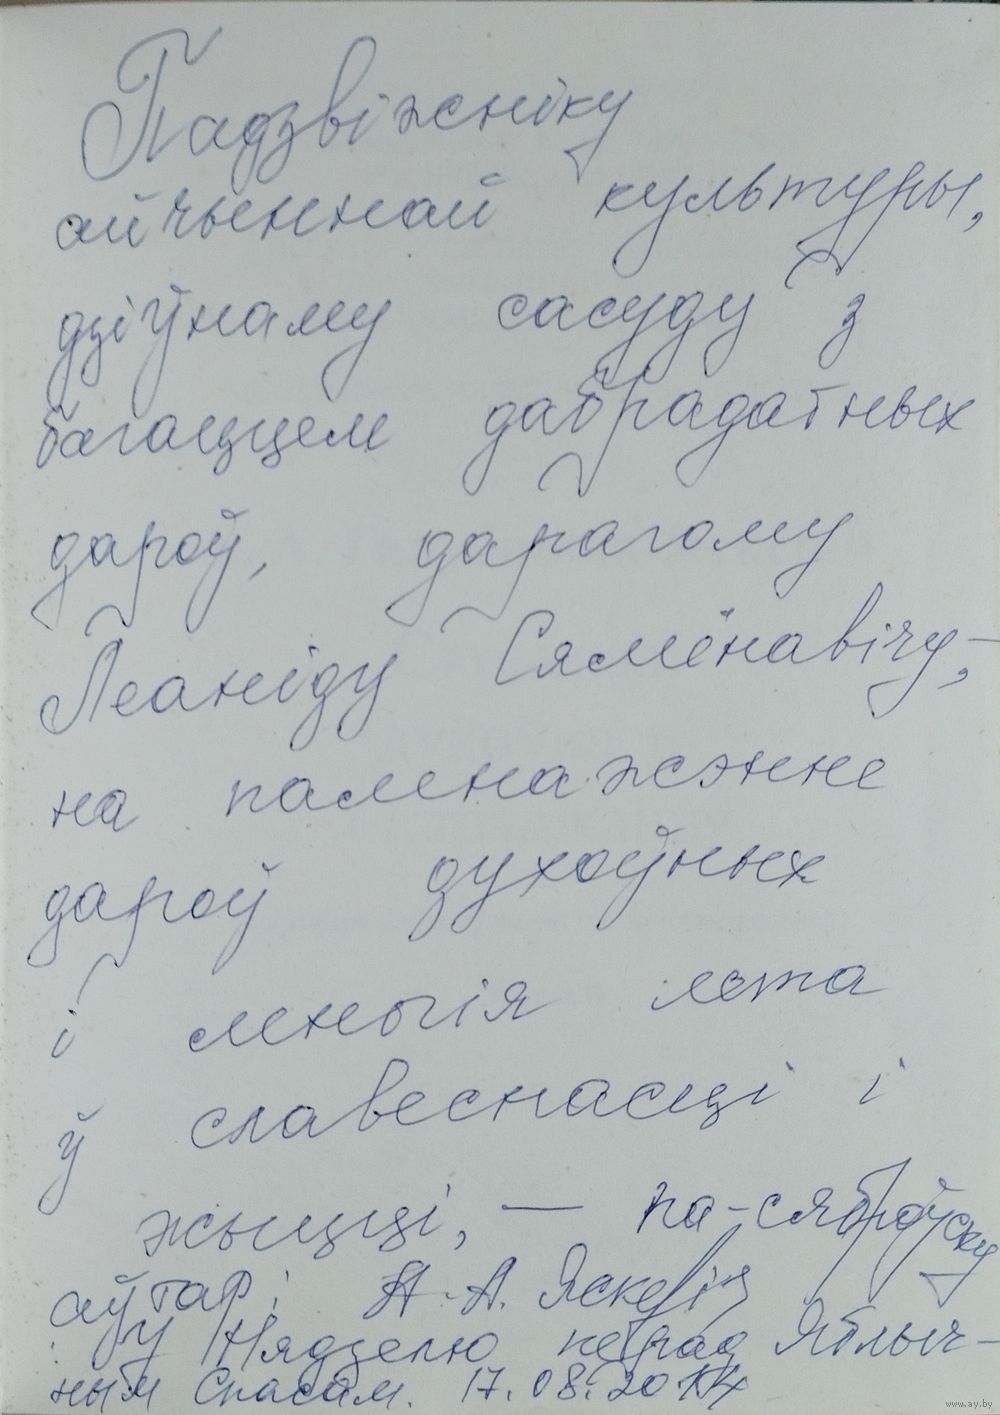 Падзвіжніку
айчыннай культуры,
дзіўнаму сасуду з
багаццем дабрадатных
дароў, дарагому
Леаніду Сямёнавічу, –
на памнажэнне
дароў духоўных
і многія лета
ў славеснасці і
жыцці, – па-сяброўску
аўтар: А. А. Яскевіч
У Нядзелю перад Яблыч-
ным Спасам. 17.08.2014
www.ay.by